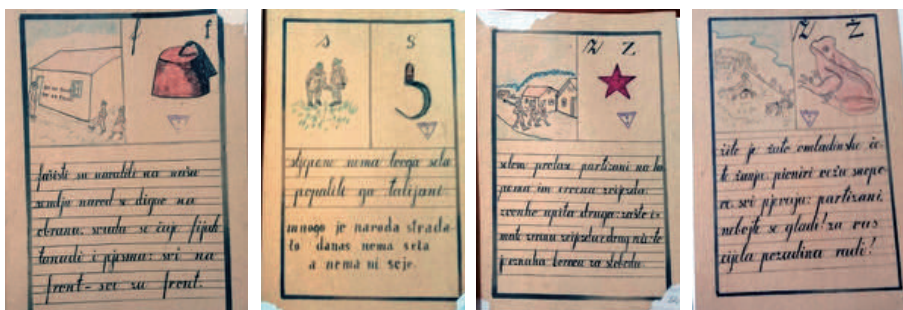 f f
fašisti su navalili na našu
zemlju narod se digao na
obranu. svuda se čuje fijuk
topova i pjesma: svi na
front - sve za front.
s s
stjepane nema tvoga sela
popalili ga talijani
mnogo je naroda strada-
lo danas nema sela
a nema ni seje.
z z
selom prolaze partizani na ka
pama im crvena zvijezda.
zvonko upita druga: zašto i-
maš crvenu zvijezdu? drug
znaka boraca za slobodu
ž ž
žito je žuto omladinke će-
te žanju. pioniri vežu snopo-
ve. svi pjevaju: partizani,
nebojte se gladi! za vas
cijela pozadina radi!